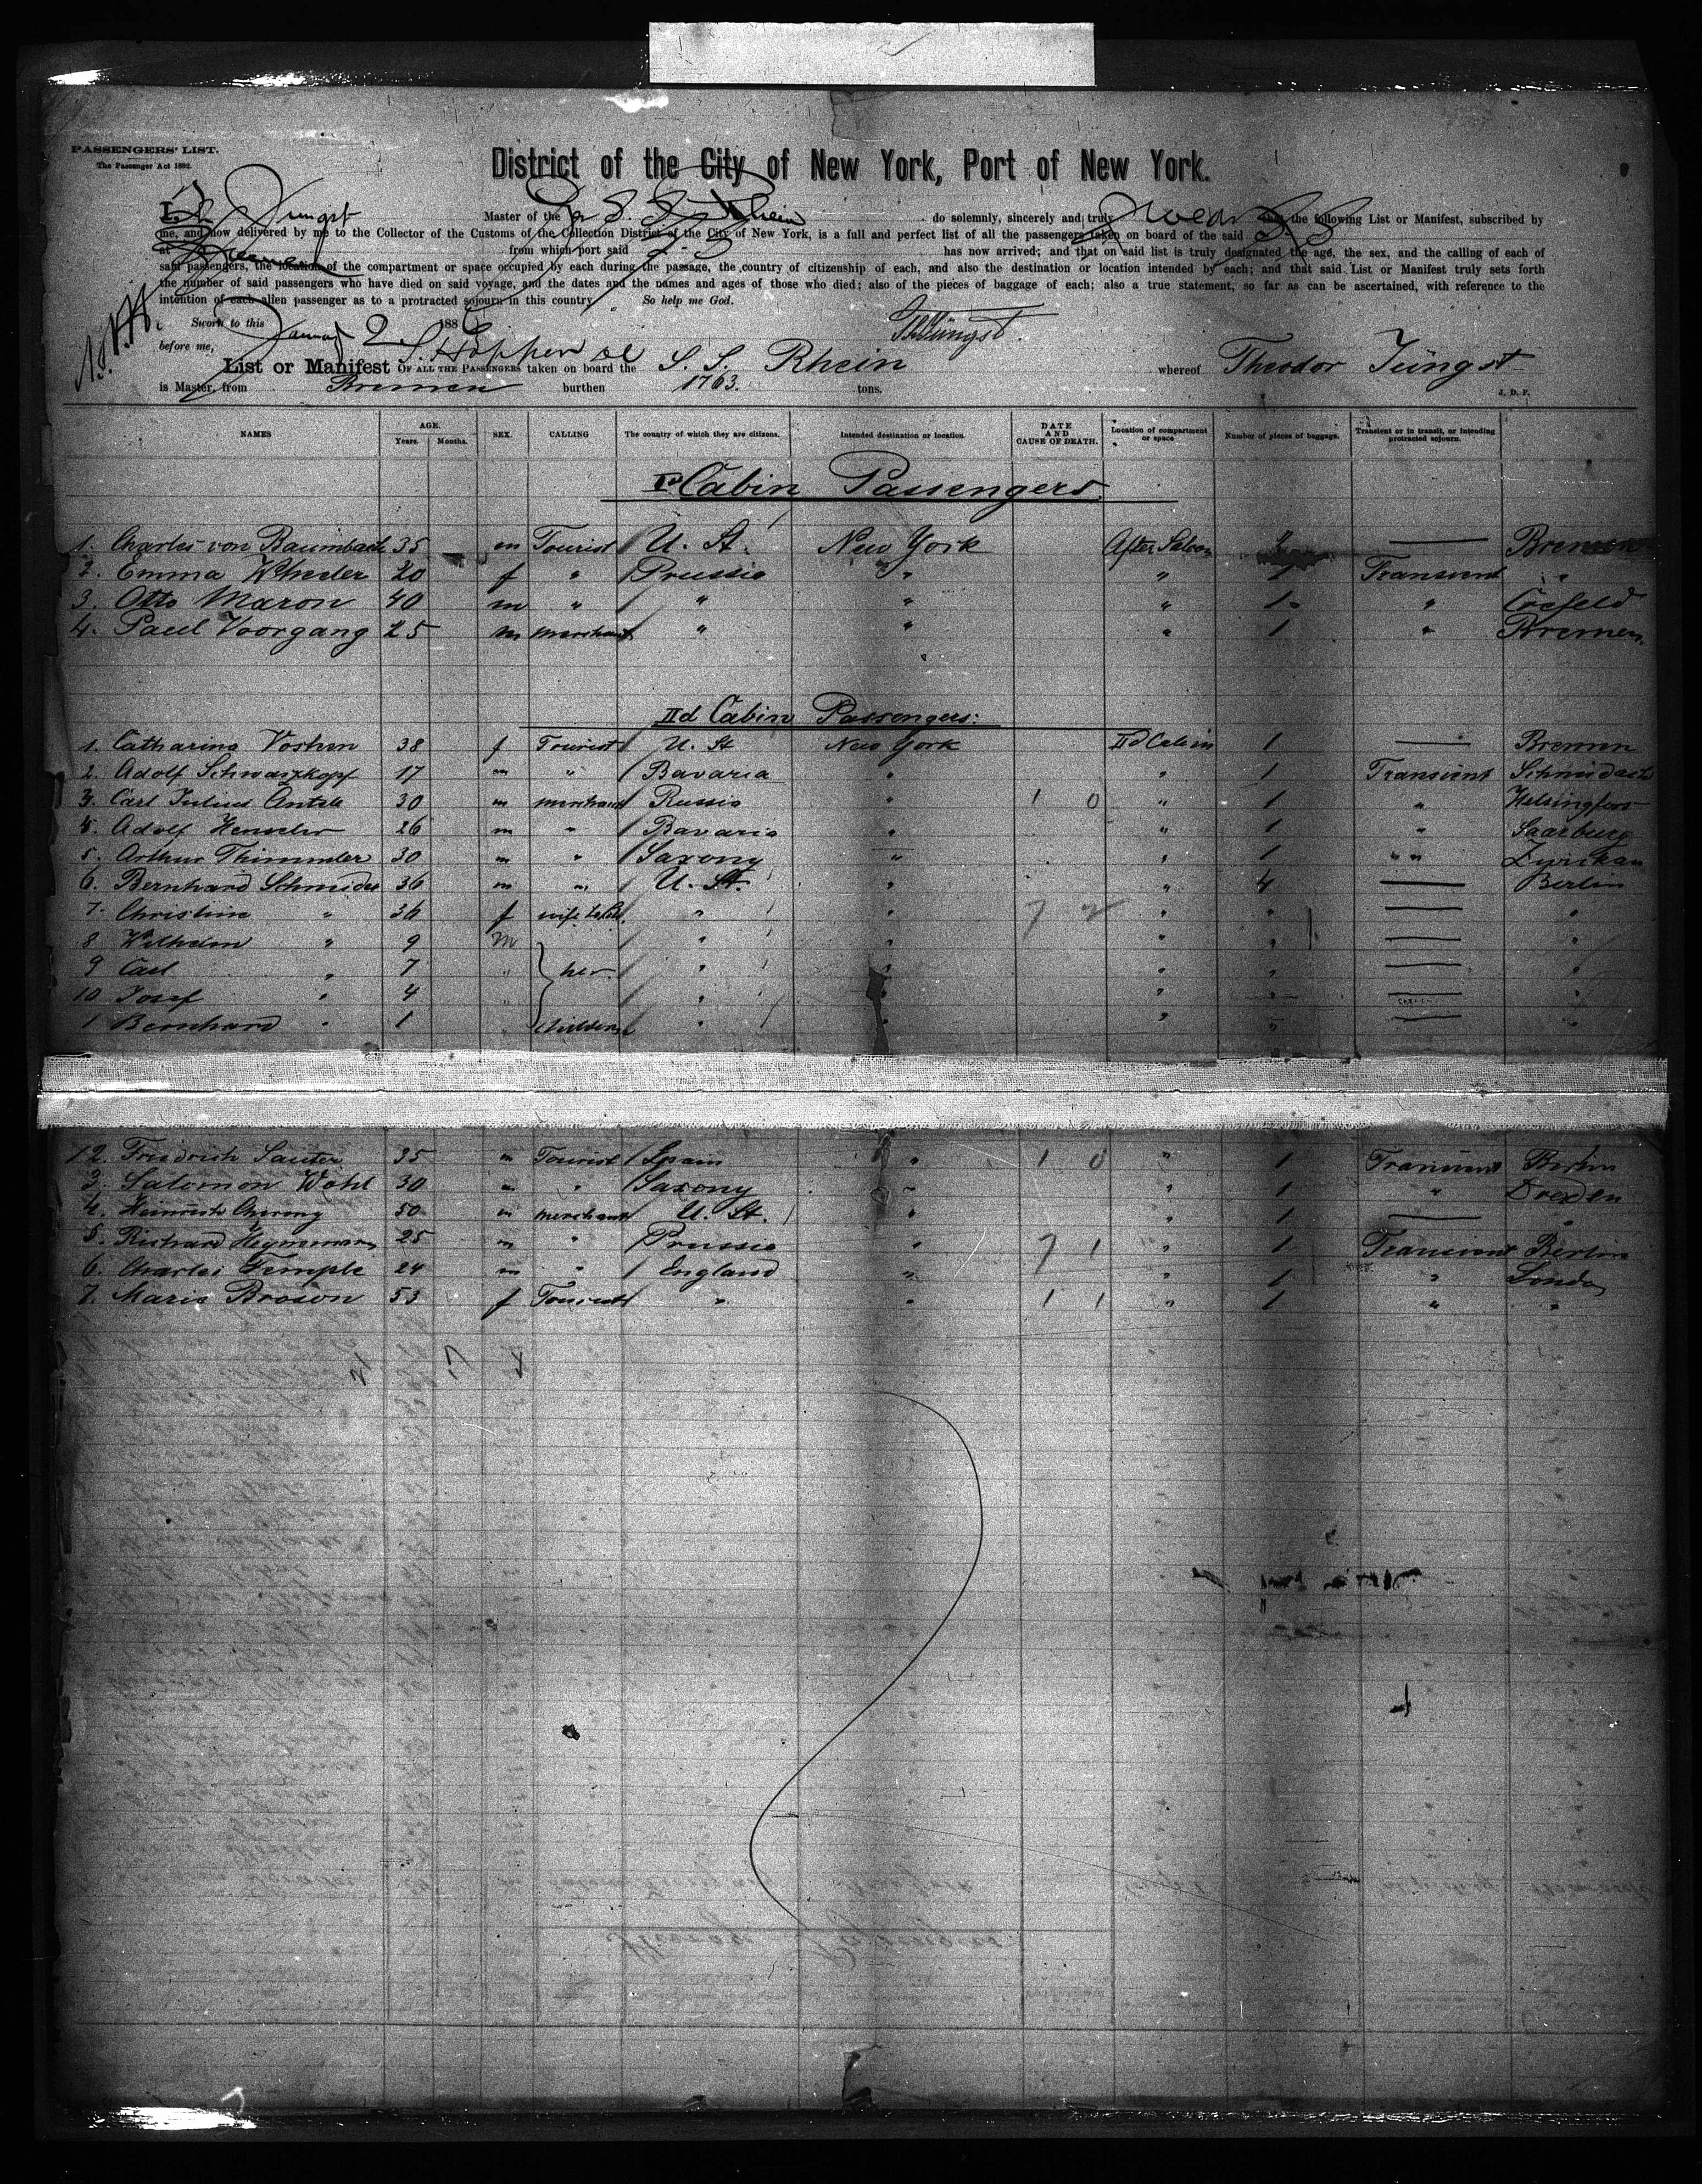 PASSENGERS' LIST.
The Passenger Act 1882.
District of the City of New York, Port of New York.
I, Th Jüngst Master of the Ger S. S. Rhein do solemnly, sincerely and truly swear that the following List or Manifest, subscribed by
me, and now delivered by me to the Collector of the Customs of the Collection District of the City of New York, is a full and perfect list of all the passengers taken on board of the said S S
at Bremen from which port said S. S has now arrived; and that on said list is truly designated the age, the sex, and the calling of each of
said passengers, the location of the compartment or space occupied by each during the passage, the country of citizenship of each, and also the destination or location intended by each; and that said List or Manifest truly sets forth
the number of said passengers who have died on said voyage, and the dates and the names and ages of those who died; also of the pieces of baggage of each; also a true statement, so far as can be ascertained, with reference to the
intention of each alien passenger as to a protracted sojourn in this country. So help me God.
Sworn to this January 2 188 Th Jüngst.
before me,
List or Manifest OF ALL THE PASSENGERS taken on board the S. S. Rhein whereof Theodor Jüngst
is Master, from Bremen burthen 1763. tons.
J. D. F.
NAMES AGE. Years. Months. SEX. CALLING The country of which they are citizens. Intended destination or location. DATE AND CAUSE OF DEATH. Location of compartment or space Number of pieces of baggage. Transient or in transit, or intending protracted sojourn.
I Cabin Passengers.
1. Charles von Baumbach 35 m Tourist U. St. New York After Saloon 2 — Bremen
2. Emma Wheeler 20 f " Prussia " " 1 Transient "
3. Otto Maron 40 m " " " " 1 " Crefeld
4. Paul Voorgang 25 m merchant " " " 1 " Bremen.
IId Cabin Passengers:
1. Catharina Voshen 38 f Tourist U. St New York IId Cabin 1 — Bremen
2. Adolf Schwarzkopf 17 m " Bavaria " " 1 Transient
3. Carl Julius 30 m merchant Russia " 1 0 " 1 " Helsingfors
4. Adolf 26 m " Bavaria " " 1 " Saarburg
5. Arthur Thimmler 30 m " Saxony " " 1 " " Zwickau
6. Bernhard Schneider 36 m " U. St. " " 4 — Berlin
7. Christine " 36 f wife " " 7 2 " " — "
8 Wilhelm " 9 m " " " " — "
9 Carl " 7 " her " " " " — "
10 Josef " 4 " " " " " — "
1 Bernhard " 1 " children " " " " — "
12. Friedrich Sauter 35 m Tourist Spain " 1 0 " 1 Transient Berlin
3. Salomon Wohl 30 m " Saxony " " 1 " Dresden
4. Heinrich 50 m merchant U. St. " " 1 — "
5. Richard Heynemann 25 m " Prussia " 7 1 " 1 Transient Berlin
6. Charles Temple 24 m " England " " 1 " London
7. Marie Broson 53 f Tourist " " 1 1 " 1 " "